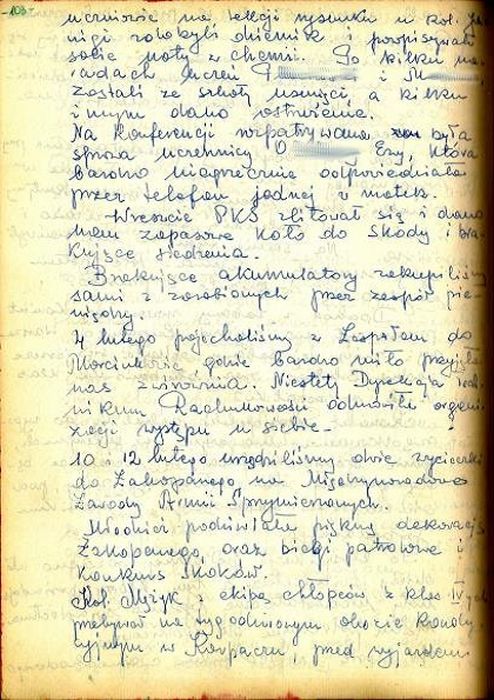 103
uczniowie na lekcji rysunku u kol. Ja
nigi zdobyli dziennik i powpisywali
sobie noty z chemii. Po kilku na
radach uczeń i
zostali ze szkoły usunięci, a kilku
innym dano ostrzeżenie.
Na Konferencji rozpatrywana była
sprawa uczennicy O Ewy, która
bardzo niegrzecznie odpowiedziała
przez telefon jednej z matek.
Wreszcie PKS zlitował się i dano
nam zapasowe Koło do Skody i bra
kujące siedzenia.
Brakujące akumulatory zakupiliśmy
sami z zarobionych przez zespół pie
niędzy.
4 lutego pojechaliśmy z Zespołem do
Marcinkowic gdzie bardzo miło przyjęła
nas Niestety Dyrekcja Tech
nikum Rachunkowości odmówiła organi
zacji występu u siebie-
10 i 12 lutego urządziliśmy dwie wycieczki
do Zakopanego na Międzynarodowe
Zawody Armii Sprzymierzonych.
Młodzież podziwiała piękną dekorację
Zakopanego, oraz biegi patrolowe i
Konkurs Skoków.
Kol. Myzyk z ekipą chłopców z klas IVych
przebywał na tygodniowym obozie kondy
cyjnym w Karpaczu, przed wyjazdem